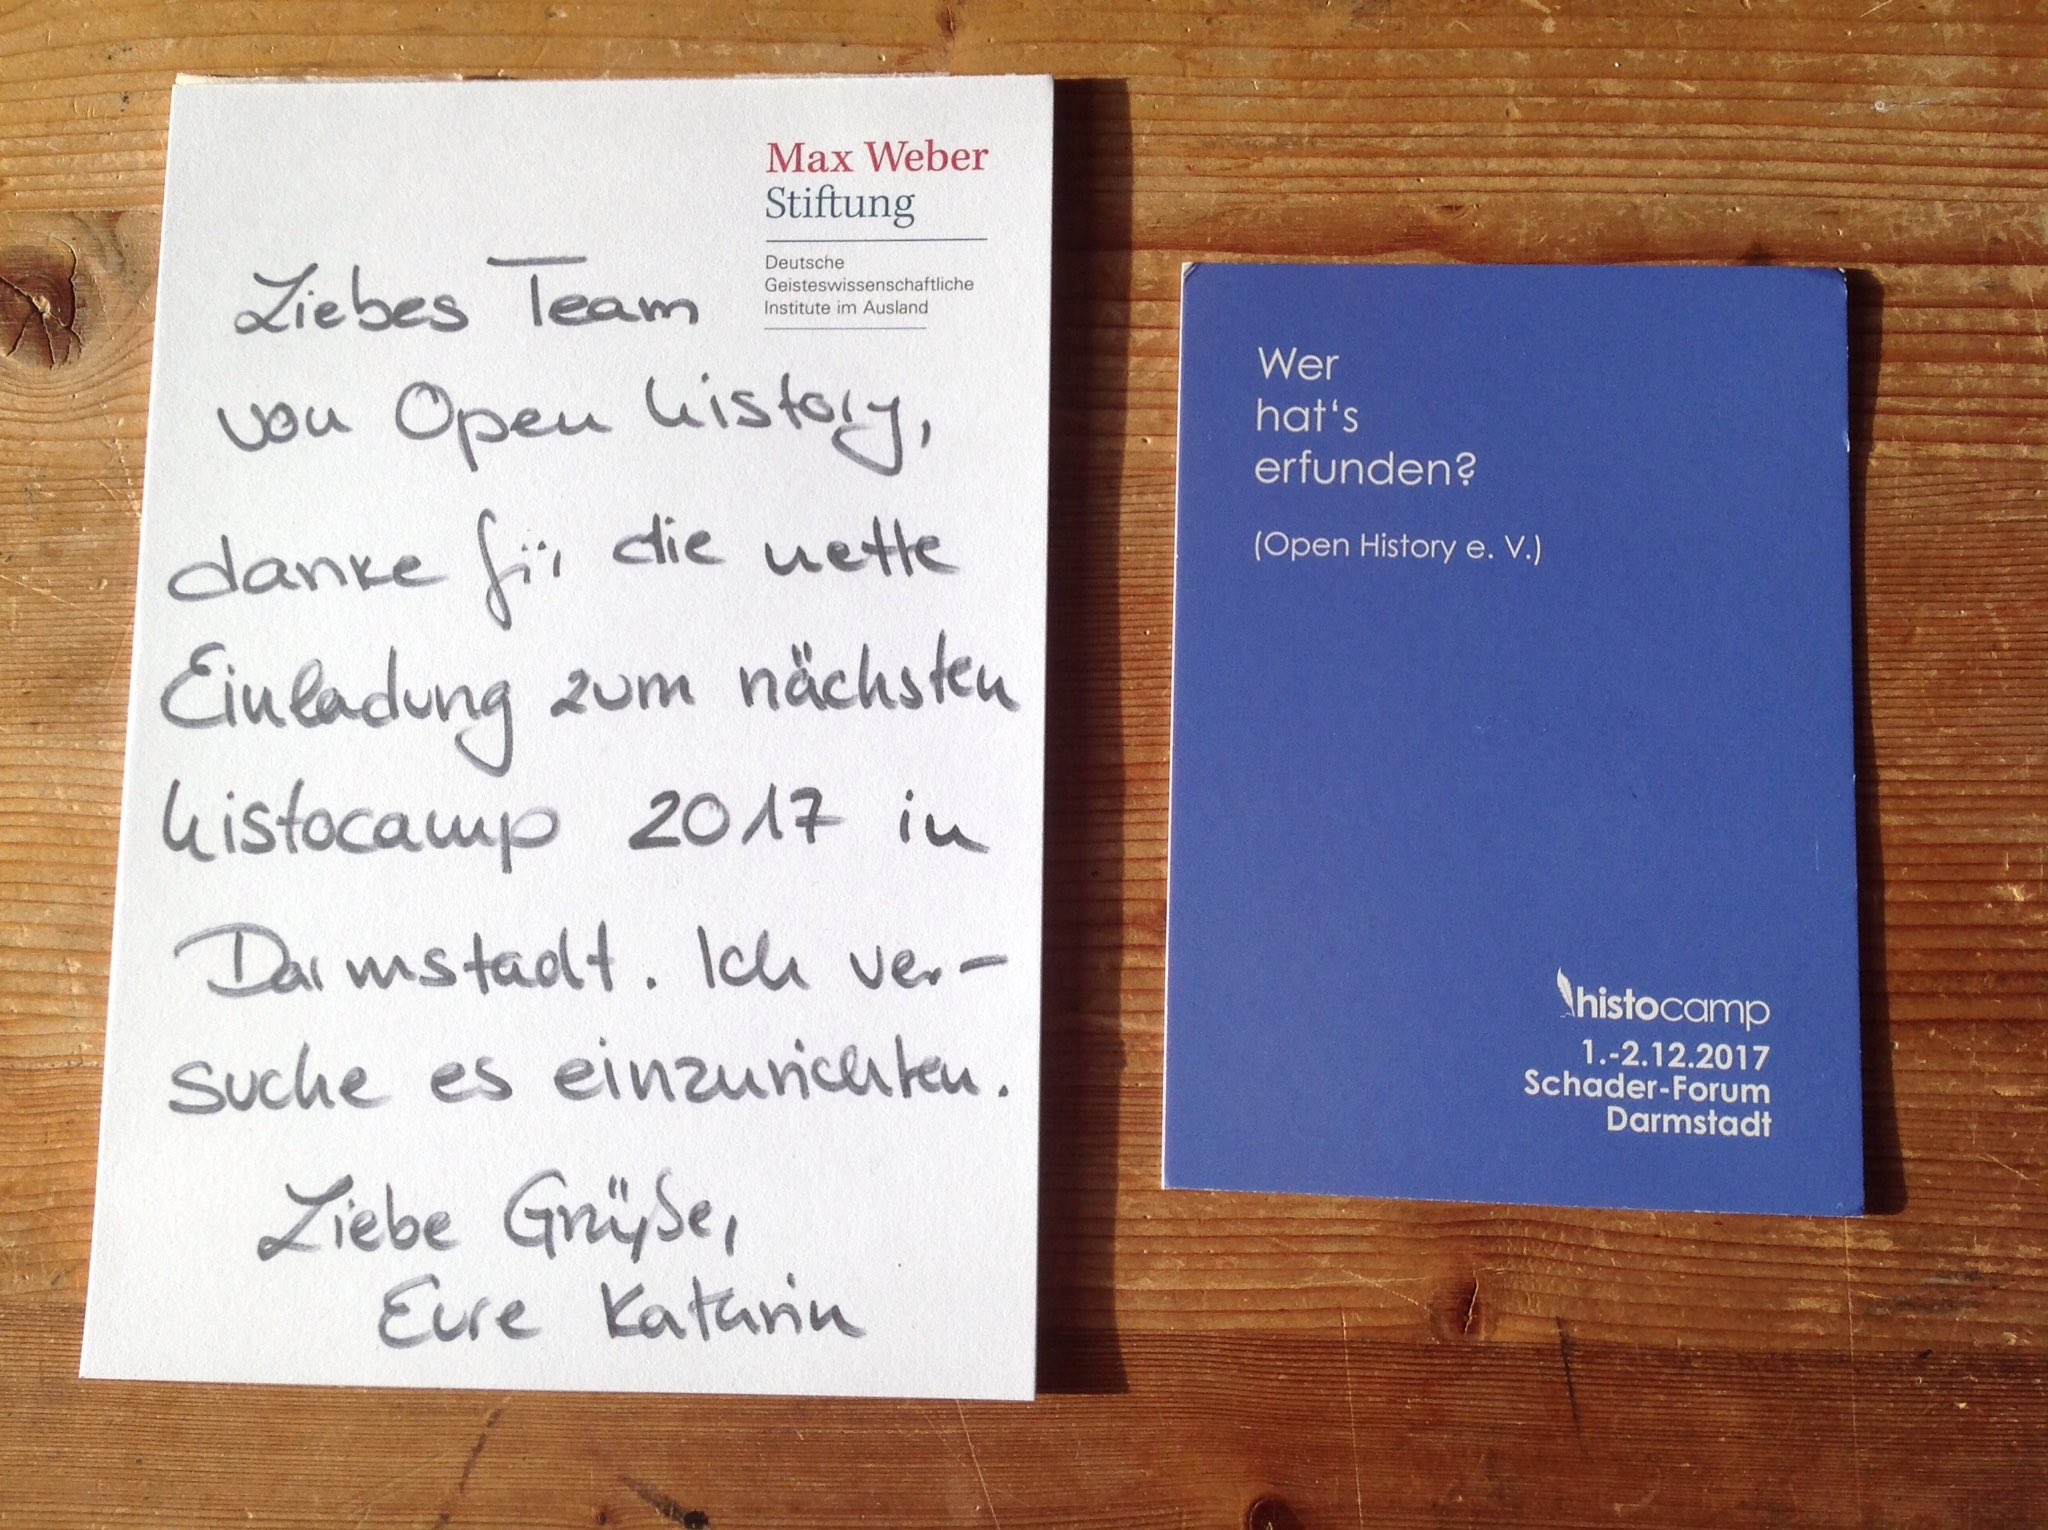 Max Weber
Stiftung
Deutsche
Geisteswissenschaftliche
Institute im Ausland
Liebes Team
von Open history,
danke für die nette
Einladung zum nächsten
histocamp 2017 in
Darmstadt. Ich ver-
suche es einzurichten.
Liebe Grüße,
Eure Kathrin
Wer
hat's
erfunden?
(Open History e. V.)
histocamp
1.-2.12.2017
Schader-Forum
Darmstadt